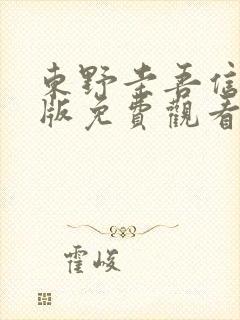 東野圭吾信
版免費觀看
霍峻